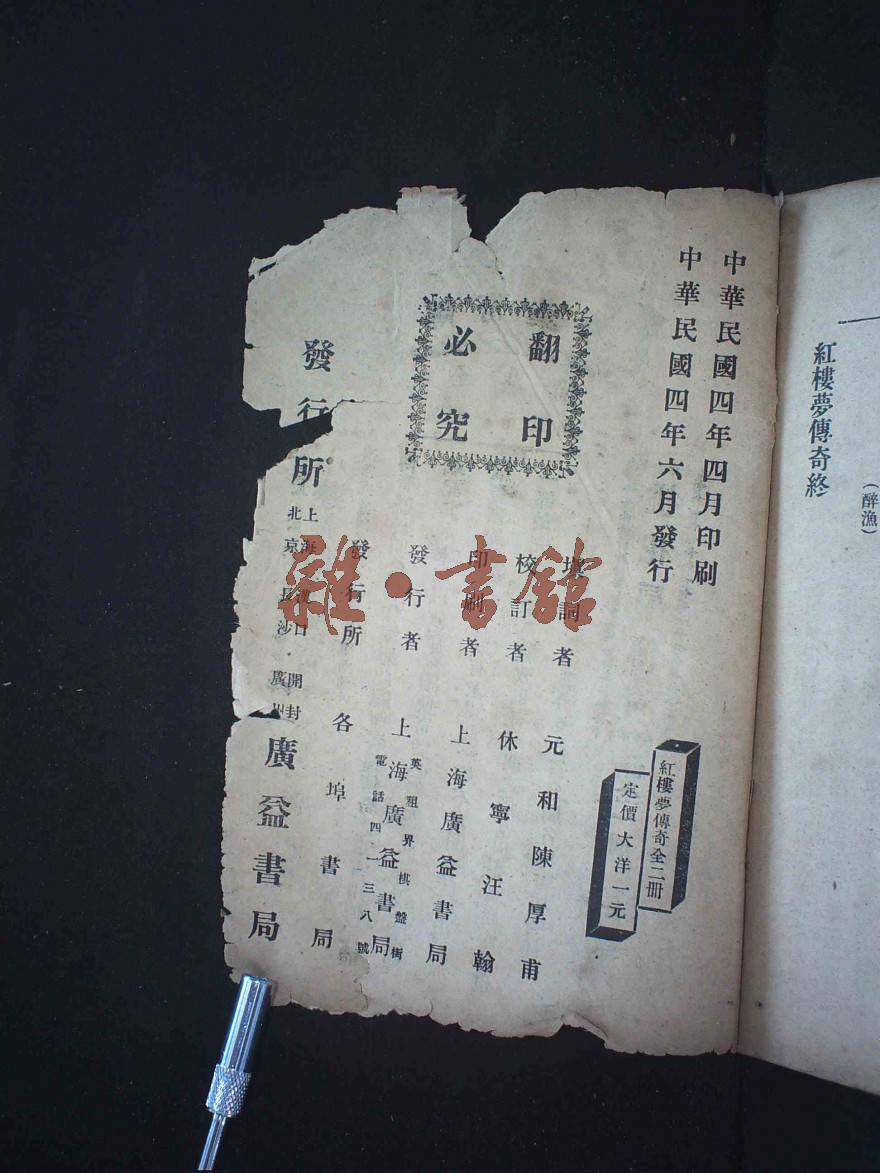 （醉漁）
紅樓夢傳奇終
中華民國四年四月印刷
中華民國四年六月發行
紅樓夢傳奇全二冊
定價大洋一元
翻印
必究
填詞者 元和陳厚甫
校訂者 休寧汪翰
印刷者 上海廣益書局
發行者 上海廣益書局
英租界棋盤街
電話四一三八號
發行所 各埠書局
發行所
上海 漢口 開封
北京 長沙 廣州
廣益書局
雜·書館